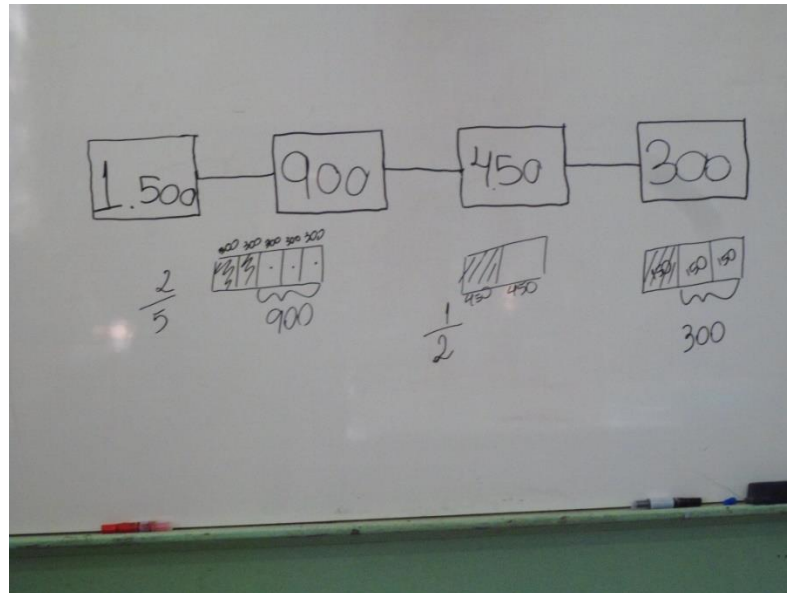 1.500 900 450 300
300 300 300 300 300
2/5
900
450 450
1/2
150 150 150
300